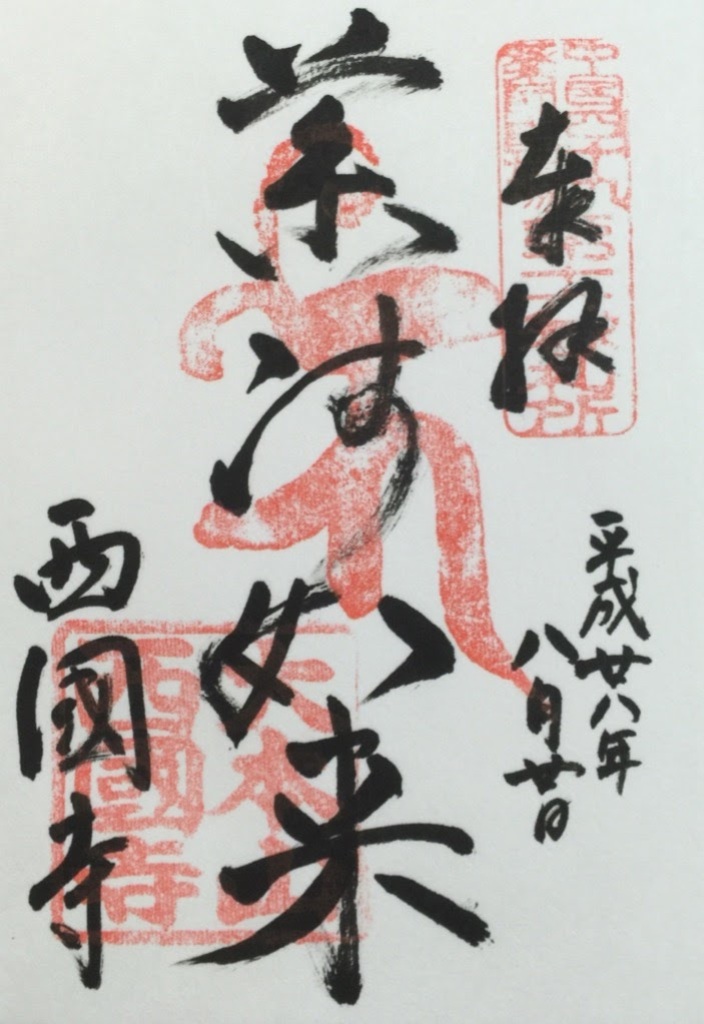 奉拝
平成廿八年
八月廿日
薬師如来
大本山
西國寺
西國寺